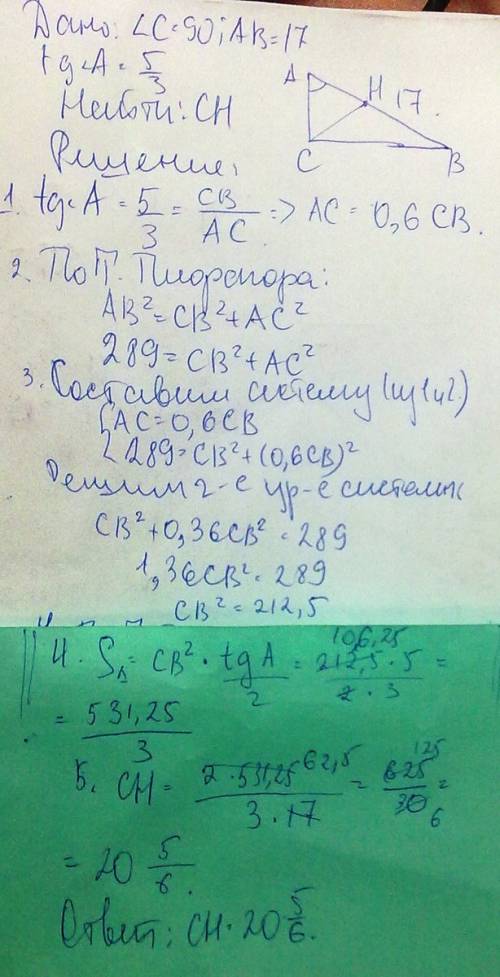 Дано: ∠C=90; AB=17
tg∠A = 5/3
Найти: CH
A
H 17
C
B
Решение:
1. tg∠A = 5/3 = CB/AC => AC = 0,6 CB.
2. По Т. Пифагора:
AB² = CB² + AC²
289 = CB² + AC²
3. Составим систему (из 1 и 2)
{AC = 0,6CB
289 = CB² + (0,6CB)²
Решим 2-е ур-е системы
CB² + 0,36CB² = 289
1,36CB² = 289
CB² = 212,5
4. S = CB² · tgA/2 = 106,25 212,5 · 5/2 · 3 =
= 531,25/3
5. CH = 2·531,25 62,5/3·17 = 625 125/30 6 =
= 20 5/6.
Ответ: CH = 20 5/6.